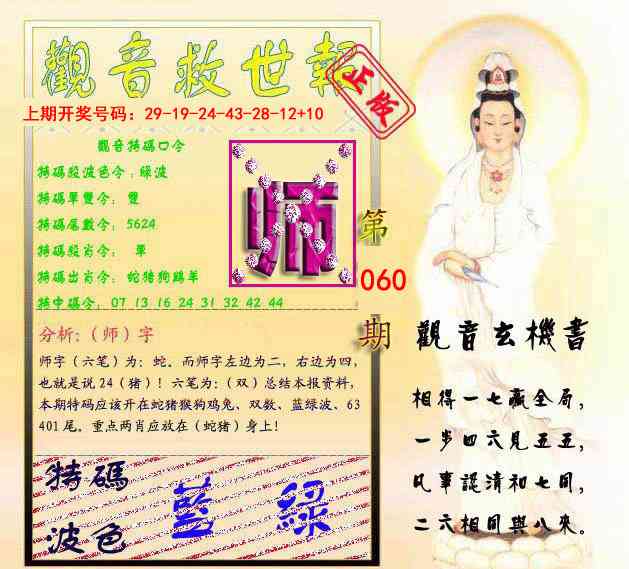 觀音救世報
正版
上期开奖号码：29-19-24-43-28-12+10
觀音特碼口令
特碼段波色令：綠波
特碼單雙令： 雙
特碼尾數令： 5624
特碼段肖令： 單
特碼出肖令： 蛇猪狗鷄羊
特中碼令： 07 13 16 24 31 32 42 44
师
第
060
期
分析：（师）字
师字（六笔）为：蛇。而师字左边为二，右边为四，
也就是说24（猪）！六笔为：（双）总结本报资料，
本期特码应该开在蛇猪猴狗鸡兔、双数、蓝绿波、63
401尾。重点两肖应放在（蛇猪）身上！
特碼
波色
藍 綠
觀音玄機書
相得一七贏全局，
一步四六見五五，
凡事認清和七同，
二六相同與八來。